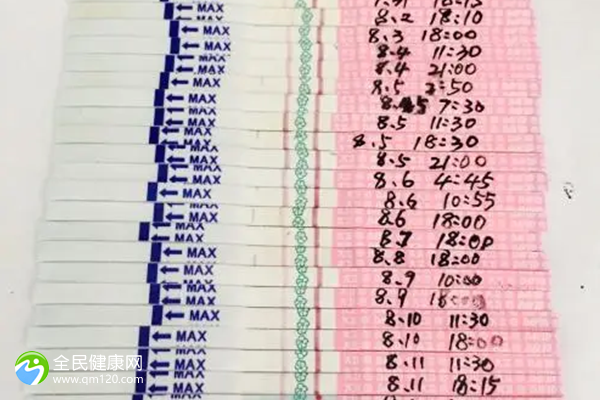 MAX
8.2 18:10
MAX
8.3 18:00
MAX
8.4 11:30
MAX
8.4 21:00
MAX
8.5
MAX
8.5 7:30
MAX
8.5 11:30
MAX
8.5 18:30
MAX
8.5 21:00
MAX
8.6 4:45
MAX
8.6 10:55
MAX
8.6 18:00
MAX
8.7 18:00
8.8 18:00
MAX
8.9 10:00
MAX
8.9
MAX
8.10 11:30
MAX
8.10 18:00
MAX
8.11 11:30
MAX
8.11 18:15
MAX
全民健康网
www.qm120.com